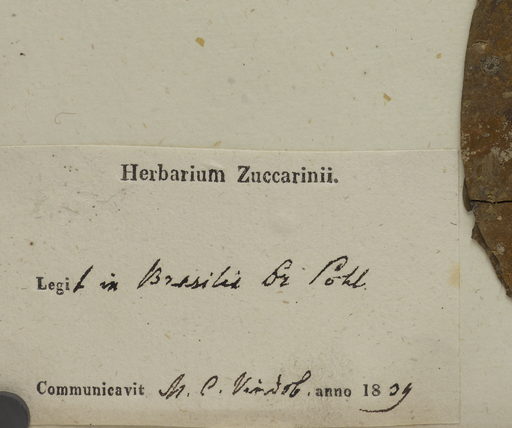 Herbarium Zuccarinii.
Legit in Brasilia Dr Pohl.
Communicavit M. C. Vindob. anno 1839